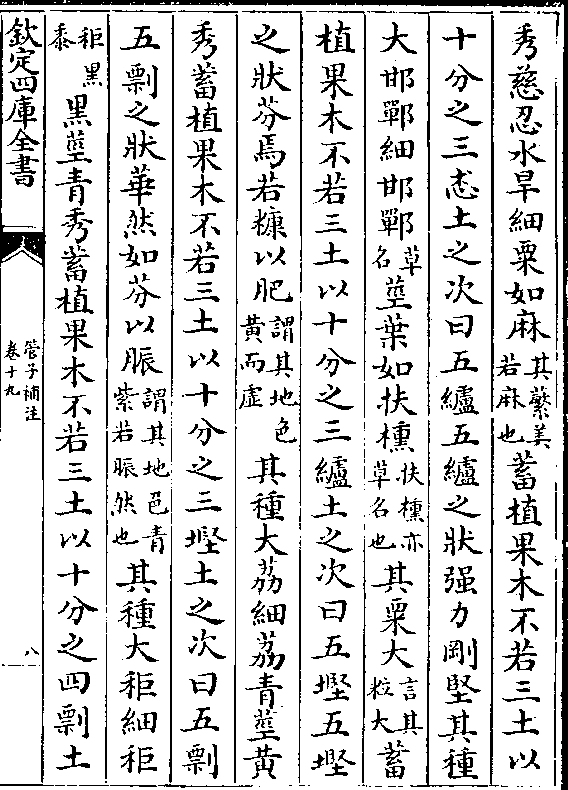 秀慈忍水旱細粟如麻其蘩美若麻也蓄植果木不若三土以
十分之三𢗘土之次曰五纑五纑之狀强力剛堅其種
大邯鄲細邯鄲草名莖葉如扶櫄扶櫄亦草名也其粟大言其粒大蓄
植果木不若三土以十分之三纑土之次曰五壏五壏
之狀芬焉若糠以肥謂其地色黄而虚其種大荔細荔青莖黄
秀蓄植果木不若三土以十分之三壏土之次曰五剽
五剽之狀華然如芬以脤謂其地色青紫若脤然也其種大秬細秬
秬黑黍黑莖青秀蓄植果木不若三土以十分之四剽土
欽定四庫全書
管子補注
卷十九
八